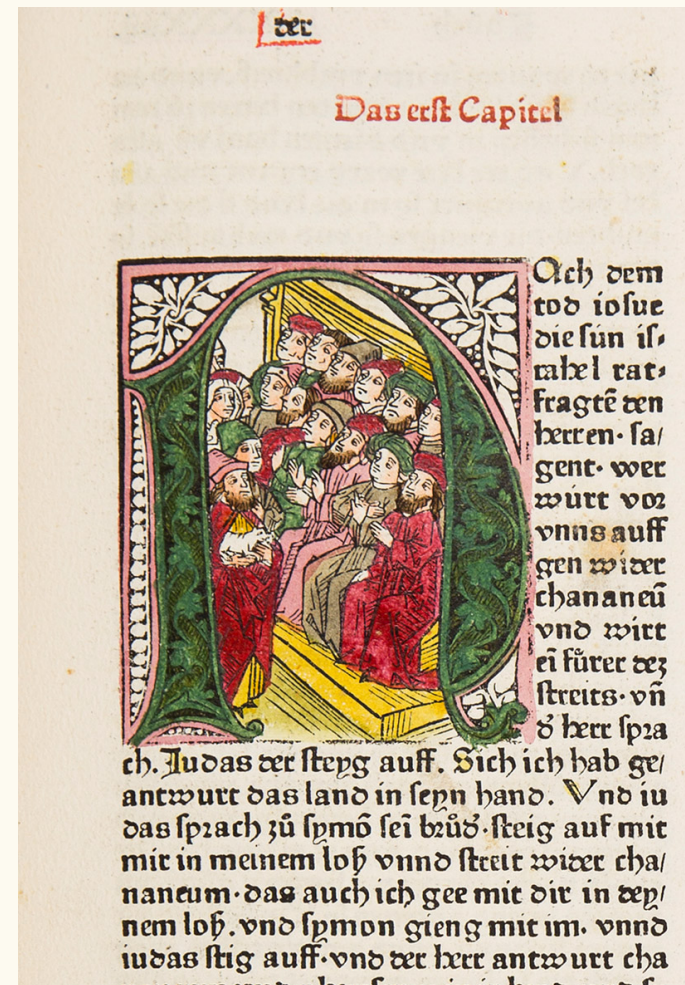 der
Das erst Capitel
Ach dem
tod iosue
die sün is⸗
rahel rat⸗
fragtē den
herren· sa/
gent· wer
würt vor
vnns auff
gen wider
chananeū
vnd wirt
ei fürer dez
streits· vn̄
d̕ herr spra
ch. Judas der steyg auff. Sich ich hab ge/
antwurt das land in seyn hand. Vnd iu
das sprach zů symō sei brůd̕· steig auf mit
mir in meinem loß vnnd streit wider cha/
naneum· das auch ich gee mit dir in dey/
nem loß. vnd symon gieng mit im. vnnd
iudas stig auff· vnd der herr antwurt cha